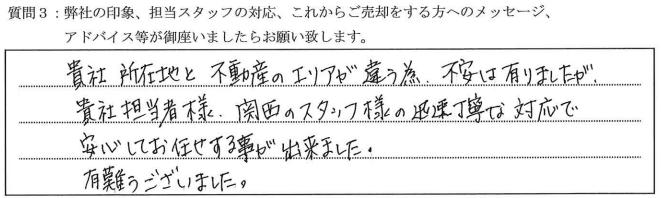 質問３：弊社の印象、担当スタッフの対応、これからご売却をする方へのメッセージ、
アドバイス等が御座いましたらお願い致します。
貴社所在地と不動産のエリアが違う為、不安は有りましたが、
貴社担当者様、関西のスタッフ様の迅速丁寧な対応で
安心してお任せする事が出来ました。
有難うございました。